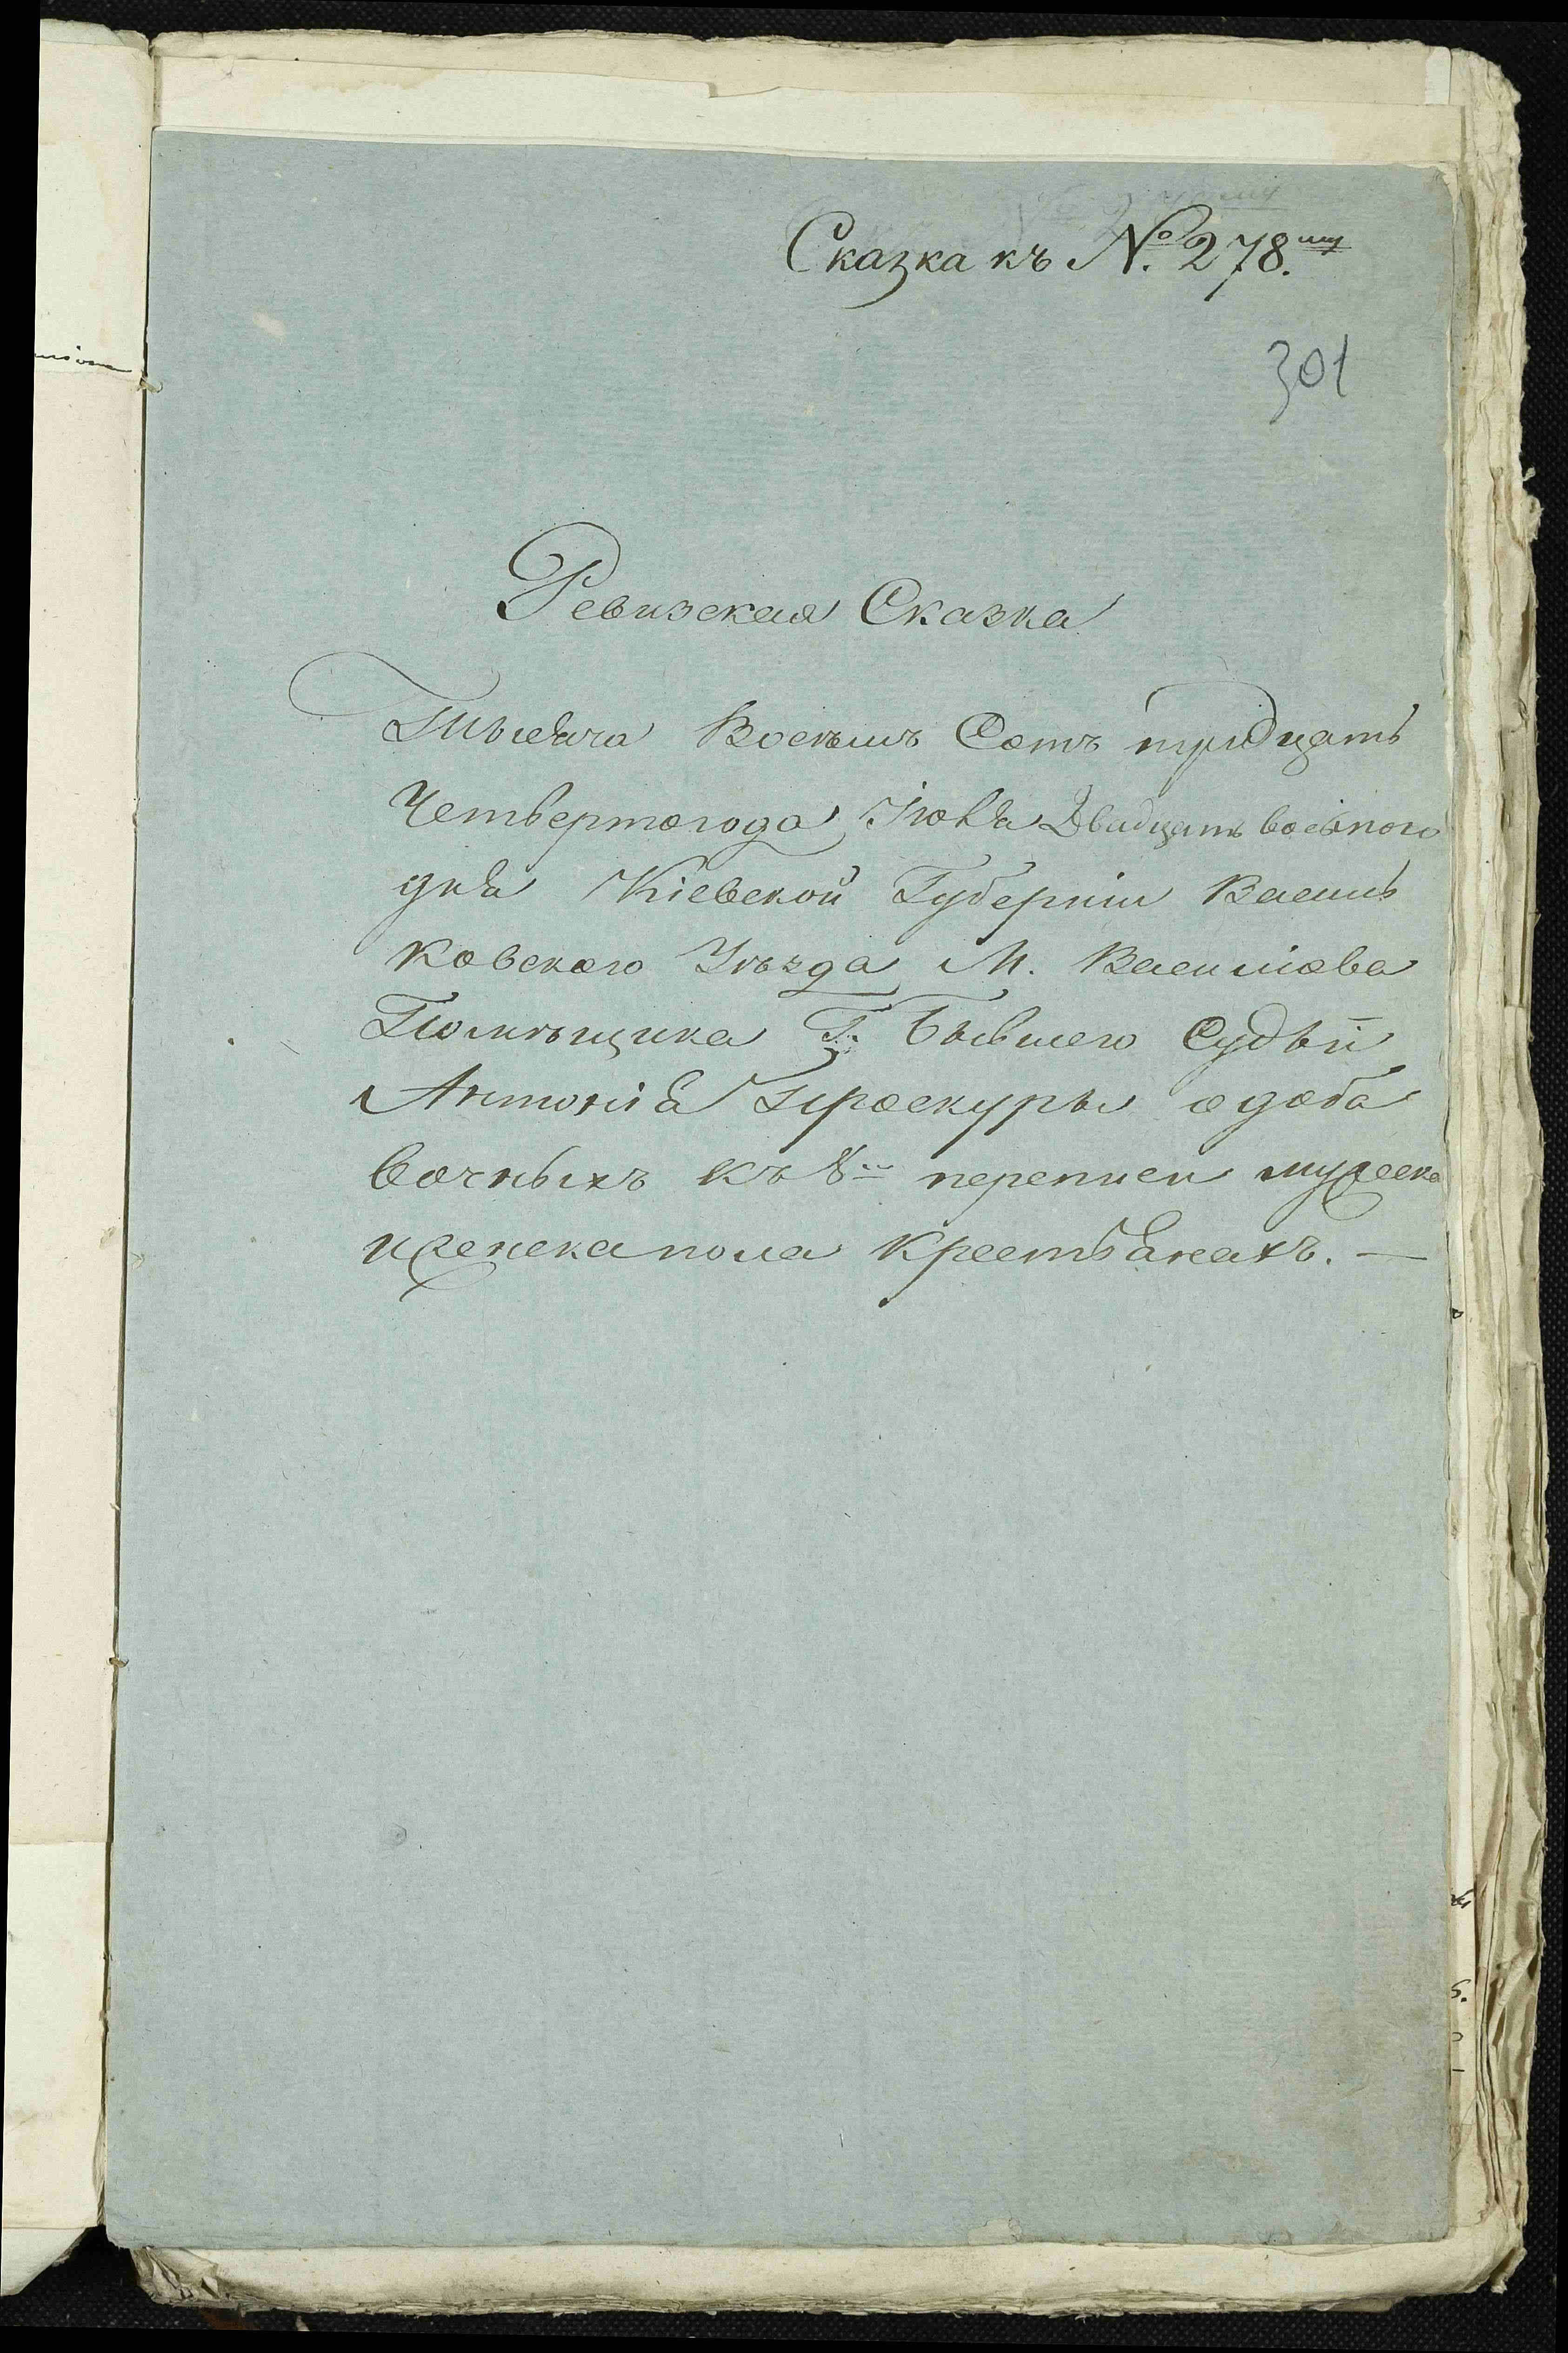 Сказка къ №. 278.му
301
Ревизская Сказка
Тысяча Восемъ Сотъ тридцать
Четвертогода Іюня Двадцать восьмого
дня Кіевской Губерніи Василь
ковского Уѣзда М.
Помѣщика Г. Бывшего Судьи
Антонія Проскуры о доба
вочныхъ къ 8й переписи мужеска
иженска пола крестьянахъ. —